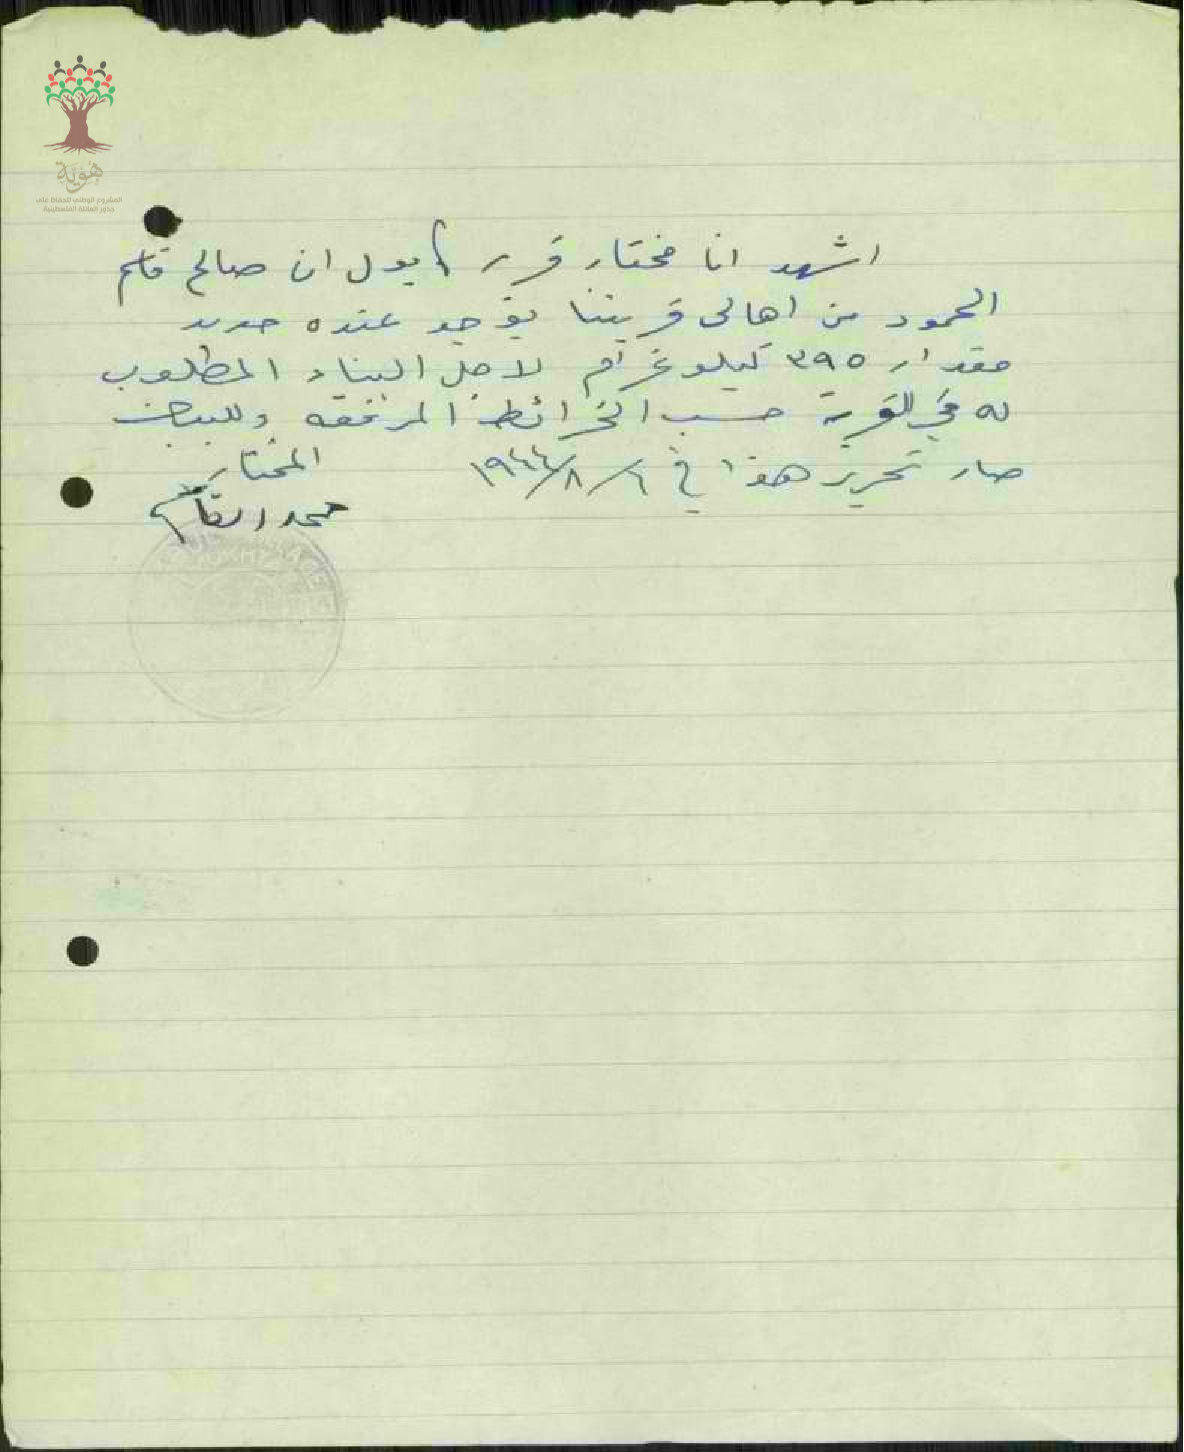 هوية
المشروع الوطني للحفاظ على
جذور العائلة الفلسطينية
اشهد انا مختار قرية يول ان صالح قاسم
الحمود من اهالي قريتنا يوجد عنده حديد
مقدار ٣٩٥ كيلو غرام لاجل البناء المطلوب
له في القرية حسب الخرائط المرفقه وللبيان
صار تحرير هذا في ٦/٨/١٩٤٤
المختار
محمد القاسم